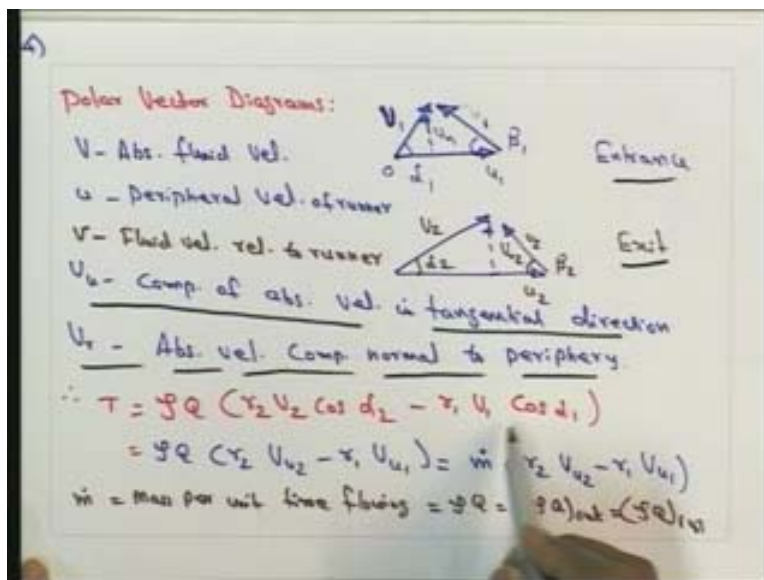 4)
Polar Vector Diagrams:
V - Abs. fluid Vel.
u - Peripheral Vel. of runner
v - Fluid vel. rel. to runner
Vu - Comp. of abs. vel. in tangential direction
Vr - Abs. vel. Comp. normal to periphery
V1 β1 O α1 u1
Entrance
V2 v2 α2 β2 u2
Exit
∴ T = ρQ (r2 V2 cos α2 - r1 V1 Cos α1)
= ρQ (r2 Vu2 - r1 Vu1) = ṁ r2 Vu2 - r1 Vu1)
ṁ = Mass per unit time flowing = ρQ = ρQ)out = (ρQ)in